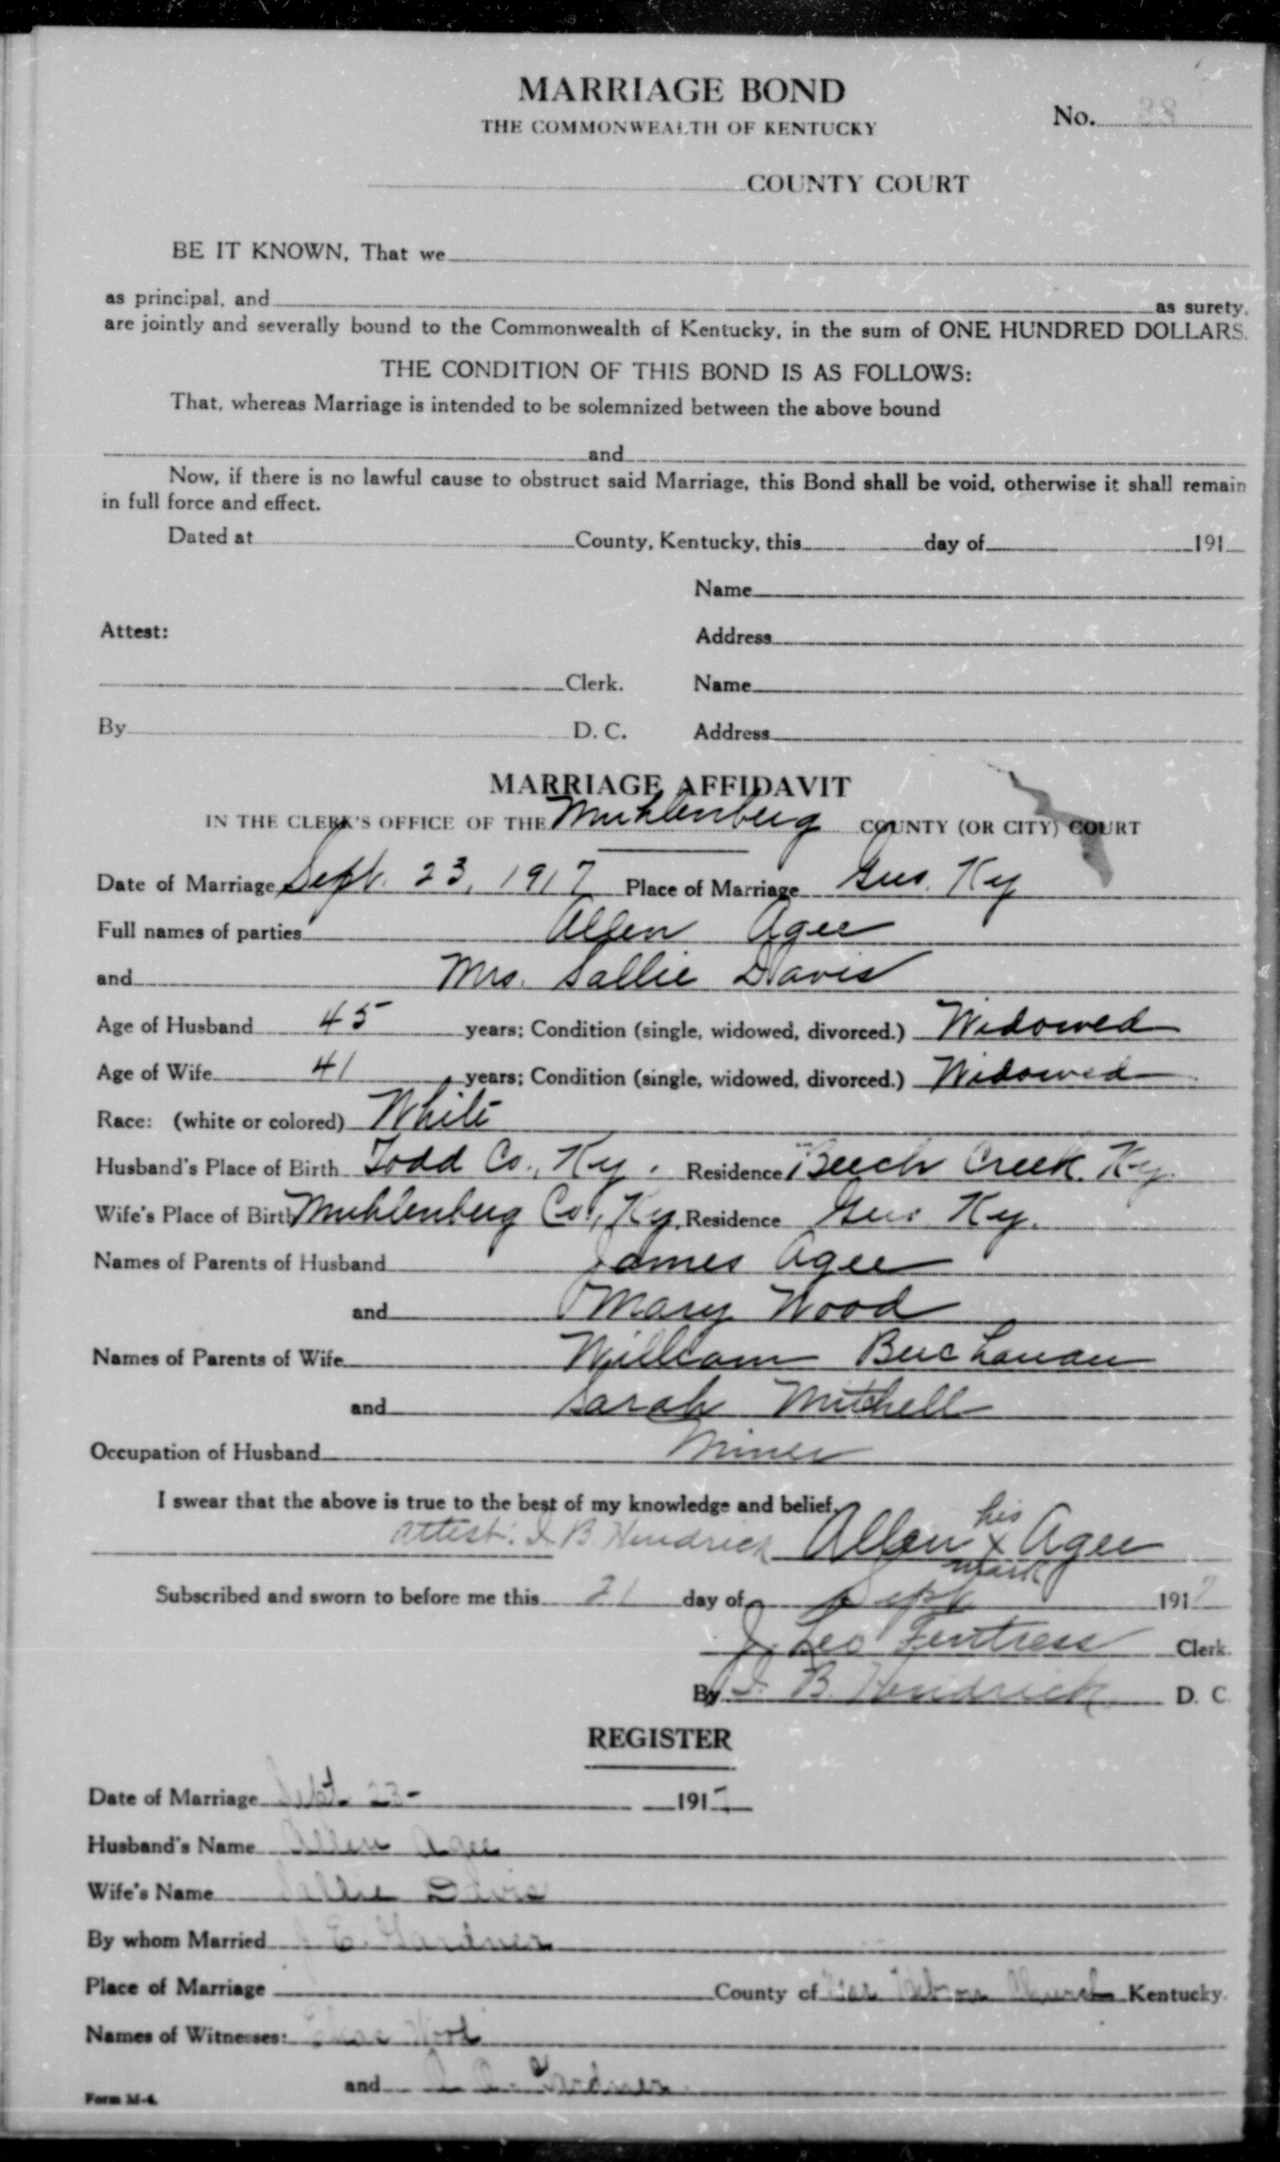 MARRIAGE BOND
THE COMMONWEALTH OF KENTUCKY
No. 33
COUNTY COURT
BE IT KNOWN, That we
as principal, and as surety,
are jointly and severally bound to the Commonwealth of Kentucky, in the sum of ONE HUNDRED DOLLARS.
THE CONDITION OF THIS BOND IS AS FOLLOWS:
That, whereas Marriage is intended to be solemnized between the above bound
and
Now, if there is no lawful cause to obstruct said Marriage, this Bond shall be void, otherwise it shall remain
in full force and effect.
Dated at County, Kentucky, this day of 191
Name
Attest: Address
Clerk. Name
By D. C. Address
MARRIAGE AFFIDAVIT
IN THE CLERK'S OFFICE OF THE Muhlenberg COUNTY (OR CITY) COURT
Date of Marriage Sept. 23, 1917 Place of Marriage Gus. Ky
Full names of parties Allen Agee
and Mrs. Sallie Davis
Age of Husband 45 years; Condition (single, widowed, divorced.) Widowed
Age of Wife 41 years; Condition (single, widowed, divorced.) Widowed
Race: (white or colored) White
Husband's Place of Birth Todd Co., Ky. Residence Beech Creek. Ky.
Wife's Place of Birth Muhlenberg Co., Ky. Residence Gus Ky.
Names of Parents of Husband James Agee
and Mary Wood
Names of Parents of Wife William Buchanan
and Sarah Mitchell
Occupation of Husband Miner
I swear that the above is true to the best of my knowledge and belief.
attest: I B. Hendrick Allen his x mark Agee
Subscribed and sworn to before me this 21 day of Sept 1917
J. Leo Fentress Clerk.
By I. B. Hendrick D. C.
REGISTER
Date of Marriage Sept. 23- 1917
Husband's Name Allen Agee
Wife's Name Sallie Davis
By whom Married J E. Gardner
Place of Marriage County of Hebron Church Kentucky.
Names of Witnesses: Wood
and Gardner
Form M-4.